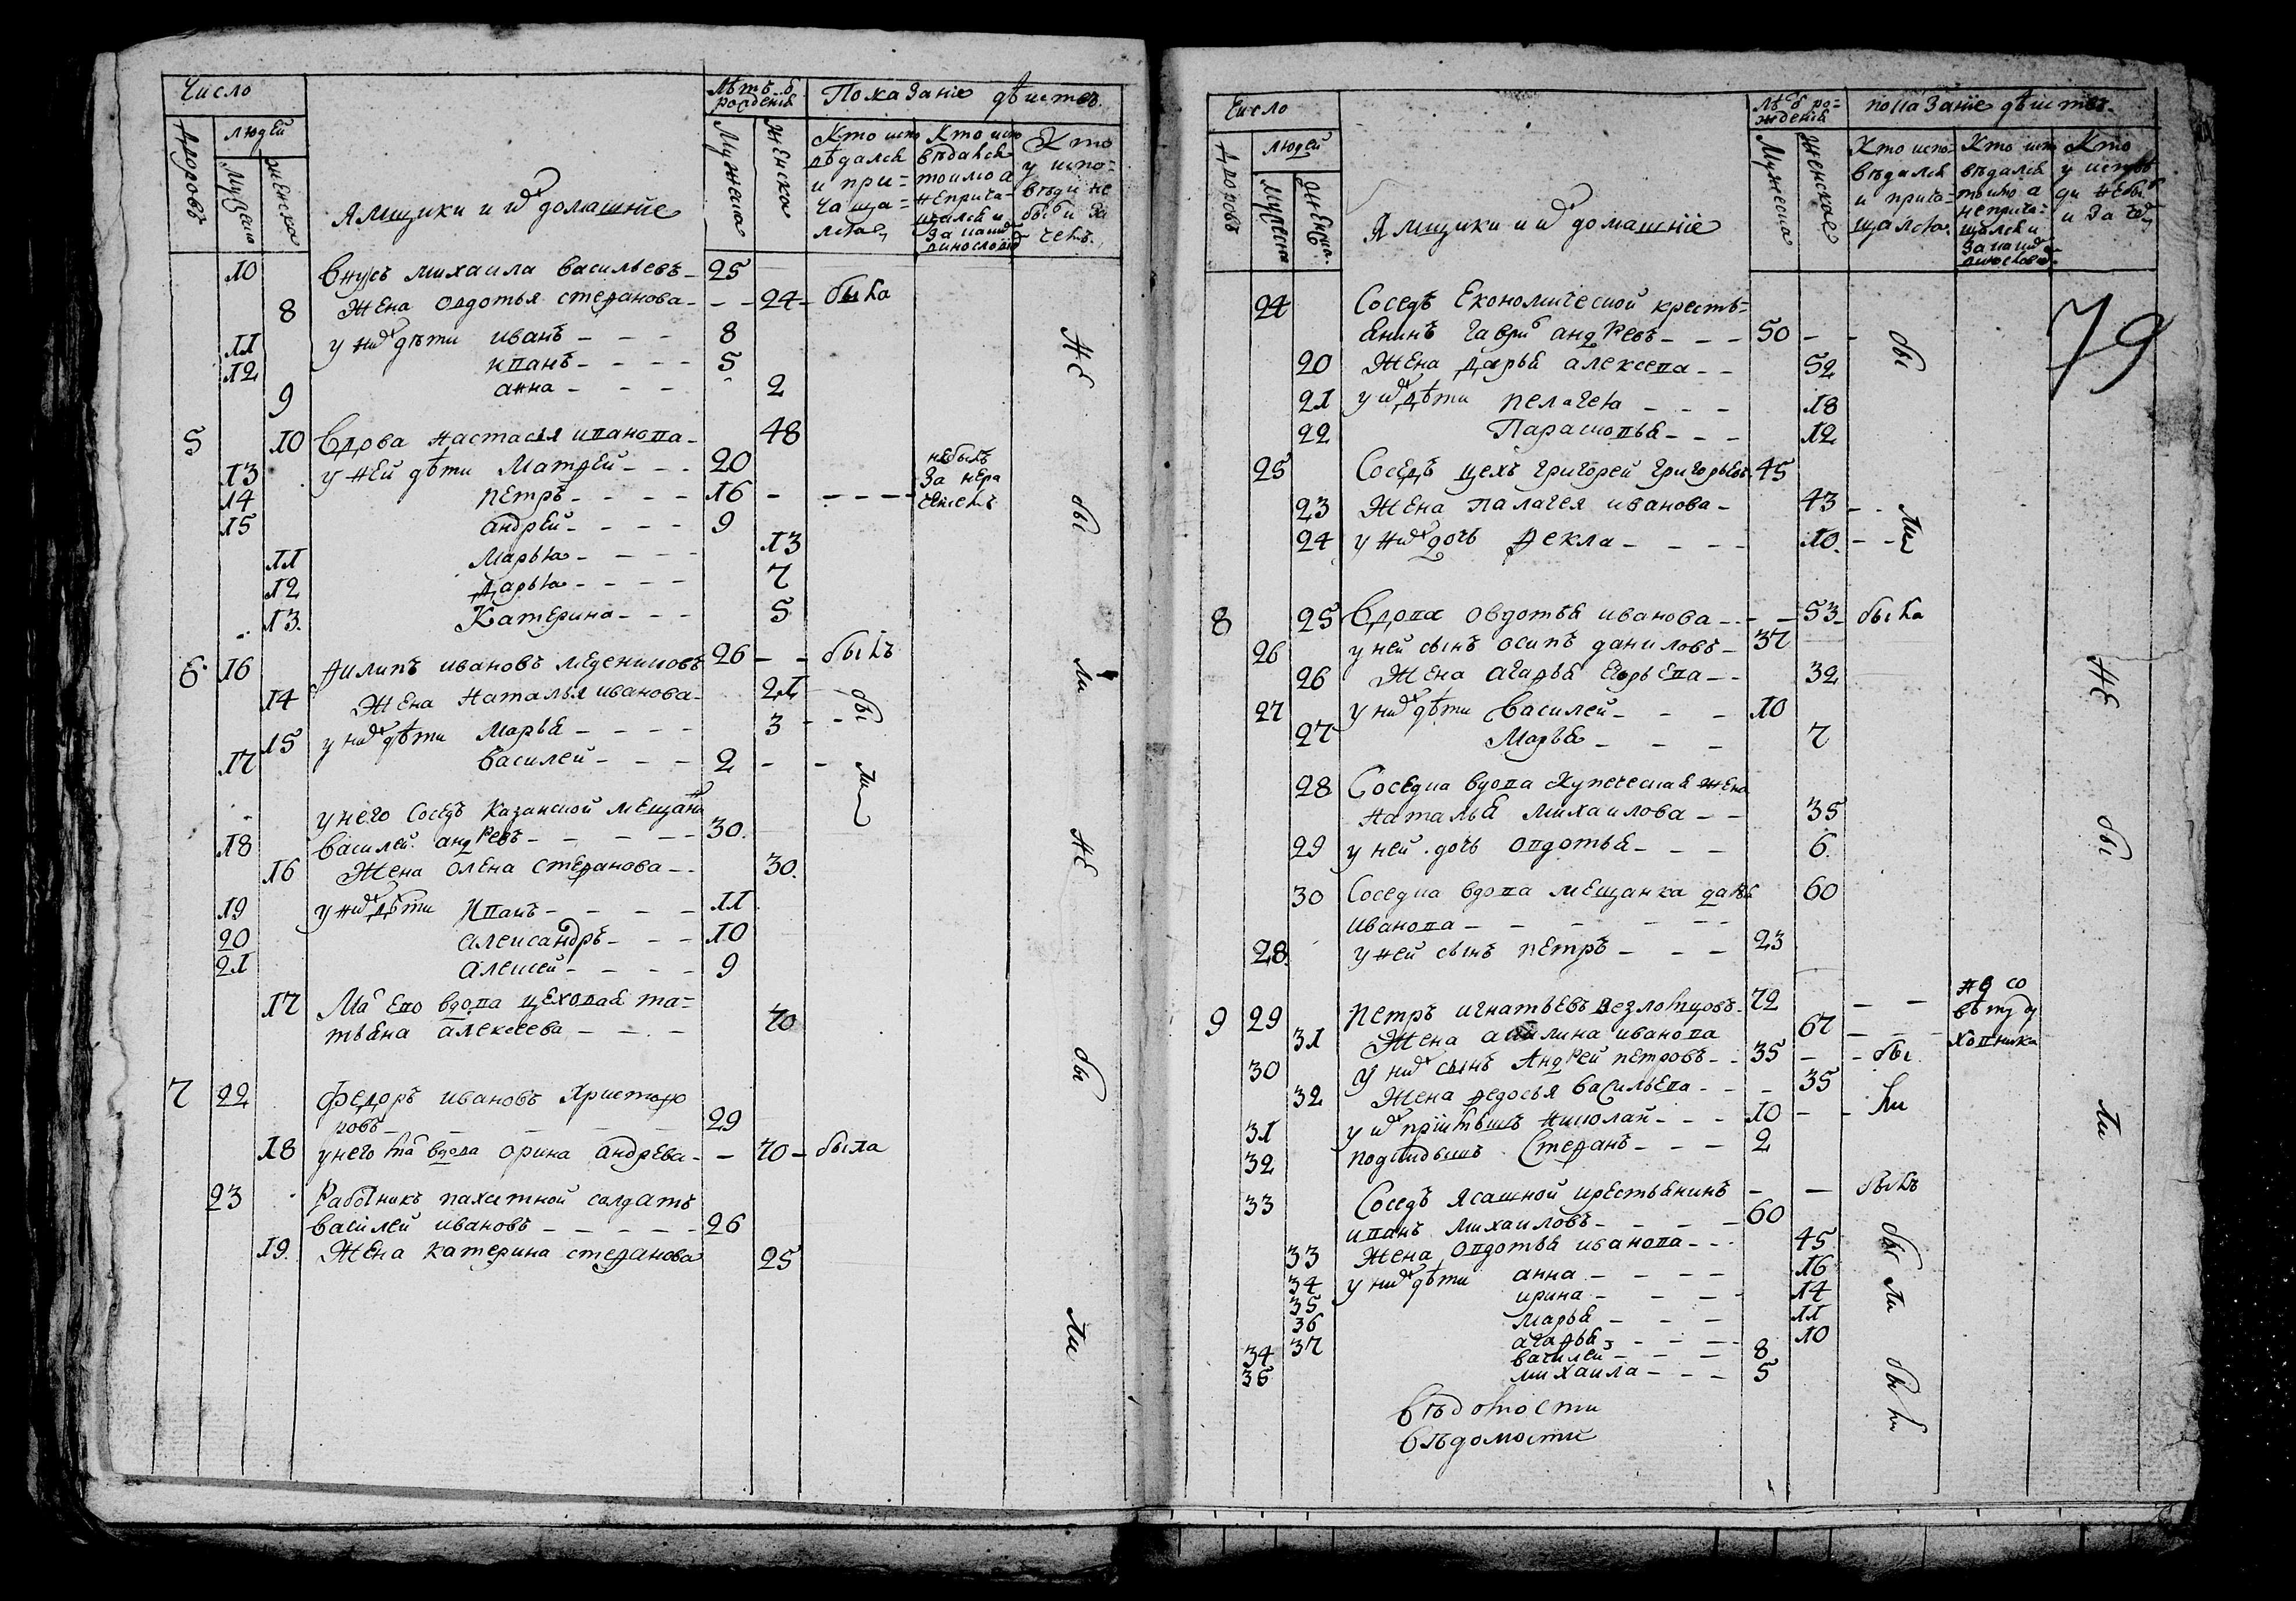 Число
Лѣтъ о рожденіѣ
Показаніе дѣистве
Дворовъ
людей
Мужеска
женска
Ямщики и ихъ домашние
Мужеска
женска
Кто исповѣдался и причащался
Кто исповѣдался токмо а не причащался и за каким винословіем
Кто у исповеди не былъ и за чемъ
10 Внукъ михаила васильевъ 25
8 Жена овдотья стефанова 24 была
11 у них дѣти иванъ 8
12 иванъ 5
9 анна 2
5 10 Вдова настасья иванова 48
13 у ней дѣти Матфей 20
14 петръ 16
15 андрей 9
небылъ за нера
11 Марья 13
12 дарья 7
13 Катерина 5
6 16 Филипъ ивановъ 26 былъ
14 Жена Наталья иванова 21
15 у них дѣти Марья 3
17 василей 2
были
у него Соседъ Казанской мещанинъ
18 василей андревъ 30
16 Жена олена стефанова 30
19 у них дѣти иванъ 11
20 александръ 10
21 алексей 9
17 Ма ево вдова цеховая та=
тьяна алексеева 70
7 22 Федоръ ивановъ Христофо
ровъ 29
18 у него ма вдова орина андрева 70 была
23 Работникъ пахатной салдатъ
василей ивановъ 26
19 Жена катерина стефанова 25
не бы ли не бы ли
Число
лѣ о рожденіѣ
показаніе дѣистве
Дворовъ
людей
Мужеска
женска
Ямщики и ихъ домашніе
Мужеска
женское
Кто исповѣдался и причащался
Кто исповѣдался токмо а не причащался и за каким винословіем
Кто у исповѣди небылъ и за чем
79
24 Соседъ Економической крестья=
енинъ гаврил андревъ 50
20 Жена дарья алексева 52
21 у их дѣти пелагея 18
22 Парасковья 12
25 Соседъ цехъ григорей григорьевъ 45
23 Жена палагея иванова 43
24 у них дочь фекла 10
были
8 25 Вдова овдотья иванова 53 была
26 у ней сынъ осипъ даниловъ 37
26 Жена агафья егорьева 32
27 у них дѣти василей 10
27 Марья 7
28 Соседка вдова купеческая жена
наталья михаилова 35
29 у ней дочь овдотья 6
30 Соседка вдова мещанка дарья 60
иванова
28 у ней сынъ петръ 23
9 29 петръ игнатьевъ 72
31 Жена акилина иванова 67
30 у них сынъ Андрей петровъ 35
32 Жена федосья васильева 35
31 у их николай 10
32 Стефанъ 2
были
33 Соседъ ясашной крестьянинъ былъ
иванъ михаиловъ 60
33 Жена овдотья иванова 45
34 у них дѣти анна 16
35 ирина 14
36 марья 11
37 агафья 10
34 василей 8
35 михаила 5
бы ли бы ли
не бы ли
вѣдомости
вѣдомости